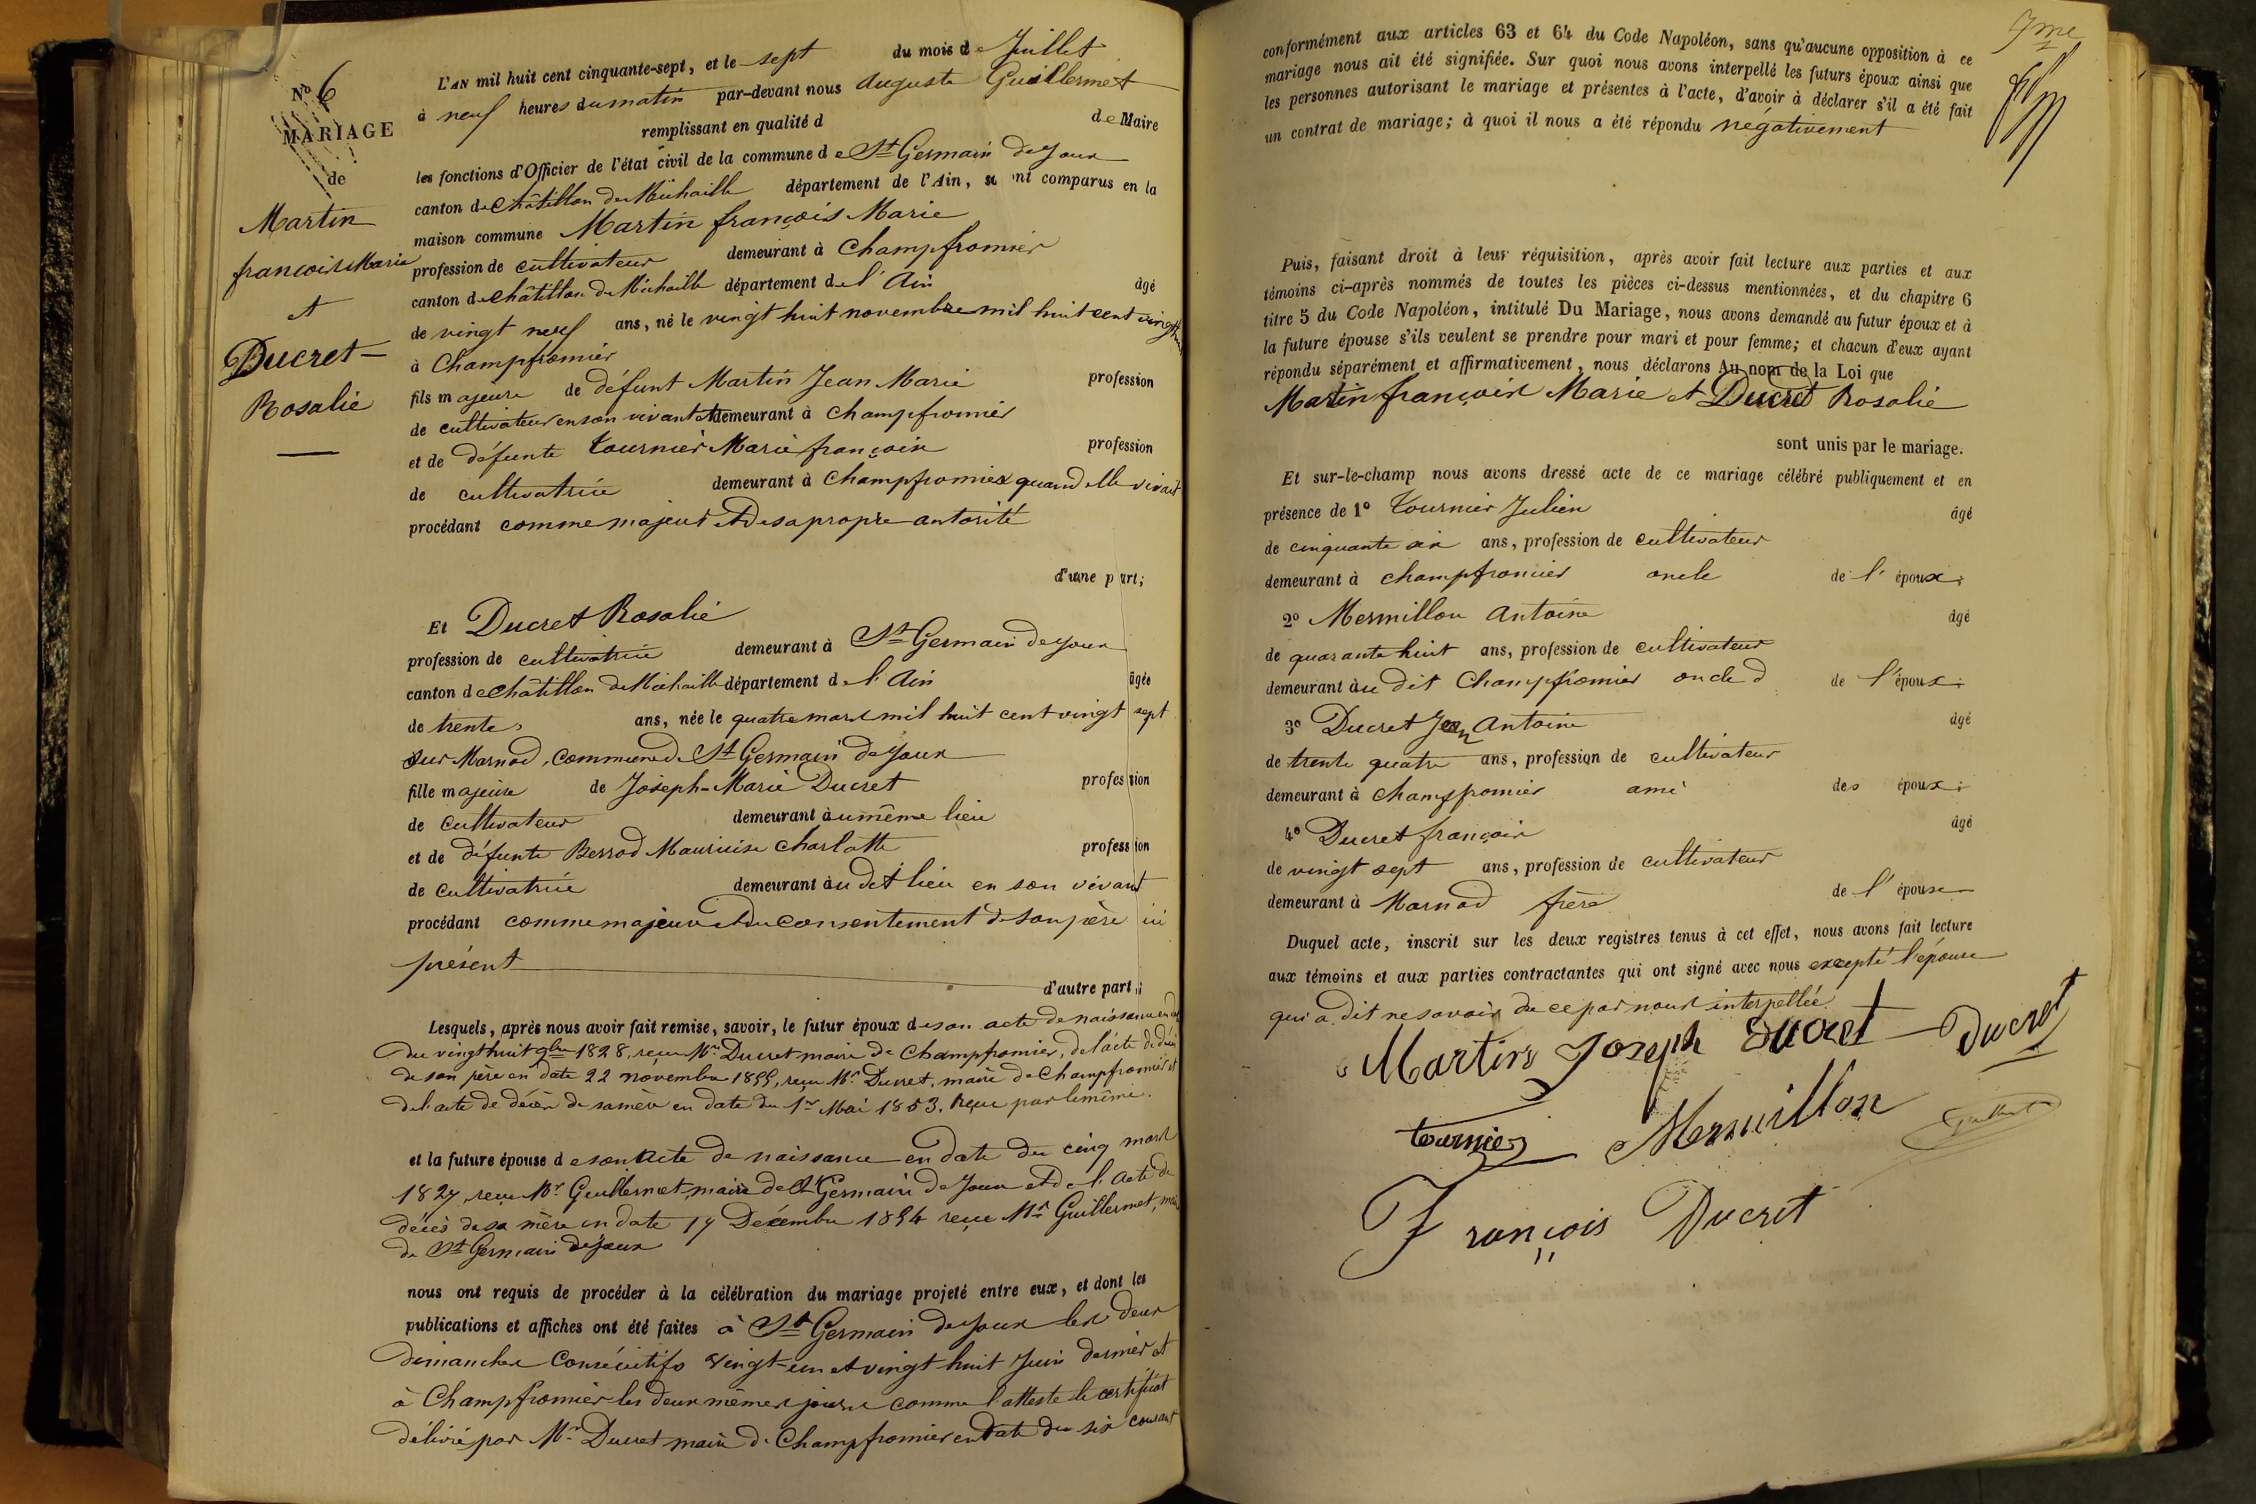 No 6
MARIAGE
de
Martin
françois Marie
et
Ducret
Rosalie
L'AN mil huit cent cinquante-sept, et le sept du mois de Juillet
à neuf heures du matin par-devant nous Auguste Guillermet
remplissant en qualité d de Maire
les fonctions d'Officier de l'état civil de la commune de St Germain de Joux
canton de Châtillon de Michaille département de l'Ain, sont comparus en la
maison commune Martin françois Marie
profession de cultivateur demeurant à Champfromier
canton de Châtillon de Michaille département de l'Ain âgé
de vingt neuf ans, né le vingt huit novembre mil huit cent vingt huit
à Champfromier
fils majeur de défunt Martin Jean Marie profession
de cultivateur en son vivant et demeurant à Champfromier
et de défunte Tournier Marie françoise profession
de cultivatrice demeurant à Champfromier quand elle vivait
procédant comme majeur et de sa propre autorité
d'une part;
Et Ducret Rosalie
profession de cultivatrice demeurant à St Germain de Joux
canton de Châtillon de Michaille département de l'Ain âgée
de trente ans, née le quatre mars mil huit cent vingt sept
sur Marnod, commune de St Germain de Joux
fille majeure de Joseph-Marie Ducret profession
de cultivateur demeurant au même lieu
et de défunte Berrod Mauricise Charlotte profession
de cultivatrice demeurant au dit lieu en son vivant
procédant comme majeure et du consentement de son père ici
présent
d'autre part;
Lesquels, après nous avoir fait remise, savoir, le futur époux de son acte de naissance en date
du vingt huit 9bre 1828, reçu Mr Ducret maire de Champfromier, de l'acte de décès
de son père en date 22 novembre 1855, reçu Mr Ducret, maire de Champfromier et
de l'acte de décès de sa mère en date du 1er Mai 1853, reçu par le même.
et la future épouse de son acte de naissance en date du cinq mars
1827, reçu Mr Guillermet, maire de St Germain de Joux et de l'acte de
décès de sa mère en date 17 Décembre 1854 reçu Mr Guillermet, maire
de St Germain de Joux
nous ont requis de procéder à la célébration du mariage projeté entre eux, et dont les
publications et affiches ont été faites à St Germain de Joux les deux
dimanches consécutifs vingt-un et vingt huit Juin dernier et
à Champfromier les deux mêmes jours comme l'atteste le certificat
délivré par Mr Ducret maire de Champfromier en date du six courant
conformément aux articles 63 et 64 du Code Napoléon, sans qu'aucune opposition à ce
mariage nous ait été signifiée. Sur quoi nous avons interpellé les futurs époux ainsi que
les personnes autorisant le mariage et présentes à l'acte, d'avoir à déclarer s'il a été fait
un contrat de mariage; à quoi il nous a été répondu negativement
Puis, faisant droit à leur réquisition, après avoir fait lecture aux parties et aux
témoins ci-après nommés de toutes les pièces ci-dessus mentionnées, et du chapitre 6
titre 5 du Code Napoléon, intitulé Du Mariage, nous avons demandé au futur époux et à
la future épouse s'ils veulent se prendre pour mari et pour femme; et chacun d'eux ayant
répondu séparément et affirmativement, nous déclarons Au nom de la Loi que
Martin françois Marie et Ducret Rosalie
sont unis par le mariage.
Et sur-le-champ nous avons dressé acte de ce mariage célébré publiquement et en
présence de 1º Tournier Julien âgé
de cinquante six ans, profession de cultivateur
demeurant à Champfromier oncle de l'époux;
2º Mermillon Antoine âgé
de quarante huit ans, profession de cultivateur
demeurant au dit Champfromier oncle d de l'époux;
3º Ducret Jean Antoine âgé
de trente quatre ans, profession de cultivateur
demeurant à Champfromier ami des époux;
4º Ducret françois âgé
de vingt sept ans, profession de cultivateur
demeurant à Marnod frère de l'épouse
Duquel acte, inscrit sur les deux registres tenus à cet effet, nous avons fait lecture
aux témoins et aux parties contractantes qui ont signé avec nous excepté l'épouse
qui a dit ne savoir de ce par nous interpellée
Martin Joseph Ducret Ducret
tournier Mermillon
François Ducret